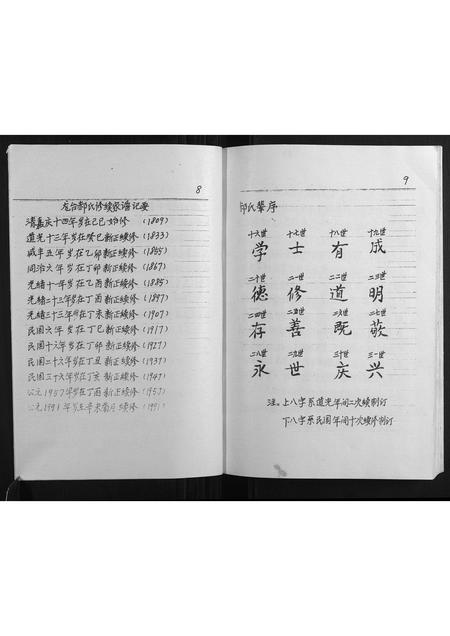 8
龙台郜氏修续家谱记要
清嘉庆十四年岁在己巳始修 (1809)
道光十三年岁在癸巳新正续修 (1833)
咸丰五年岁在乙卯新正续修 (1855)
同治六年岁在丁卯新正续修 (1867)
光绪十一年岁在乙酉新正续修 (1885)
光绪二十三年岁在丁酉新正续修 (1897)
光绪三十三年岁在丁未新正续修 (1907)
民国六年岁在丁巳新正续修 (1917)
民国十六年岁在丁卯新正续修 (1927)
民国二十六年岁在丁丑新正续修 (1937)
民国三十六年岁在丁亥新正续修 (1947)
公元1957年岁在丁酉新正续修 (1957)
公元1991年岁在辛未 续修 (1991)
9
郜氏辈序
十六世 十七世 十八世 十九世
学 士 有 成
二十世 二一世 二二世 二三世
德 修 道 明
二四世 二五世 二六世 二七世
存 善 既 敬
二八世 二九世 三十世 三一世
永 世 庆 兴
注。上八字系道光年间二次续制订
下八字系民国年间十次续修制订